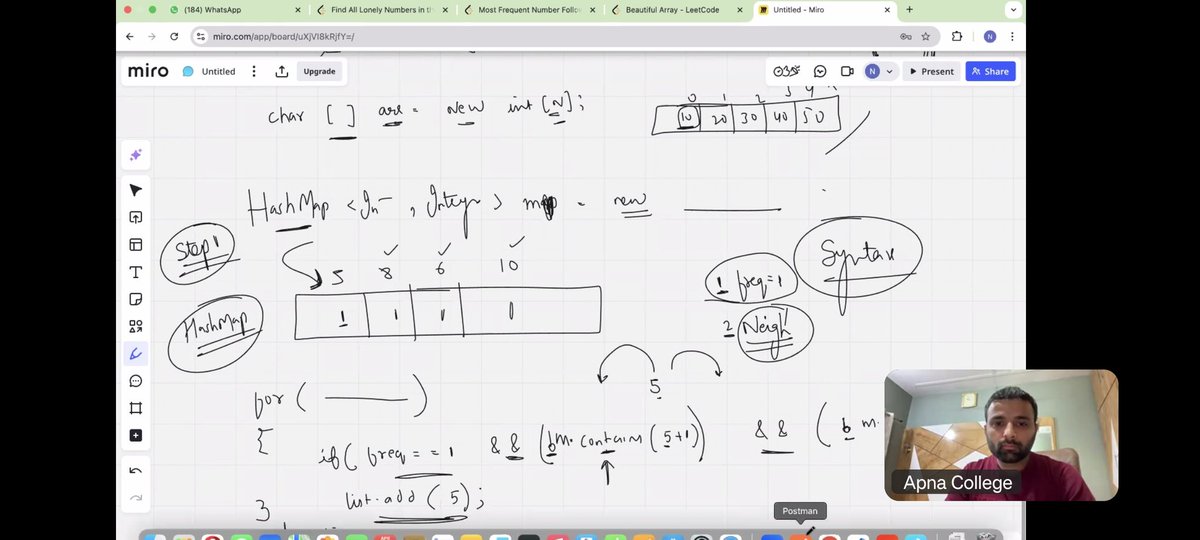 (184) WhatsApp
Find All Lonely Numbers in th
Most Frequent Number Follow
Beautiful Array - LeetCode
Untitled - Miro
miro.com/app/board/uXjVI8kRjfY=/
miro Untitled Upgrade
N Present Share
char [ ] arr = new int [N];
0 1 2 3 4
10 20 30 40 50
HashMap <In , Integer> map = new
Step 1
5 8 6 10
1 1 1 1
HashMap
1 freq=1
2 Neigh
Syntax
5
for ( )
{
if ( freq == 1 && (bm. contains (5+1)) && ( b m.
list.add ( 5);
}
Apna College
Postman